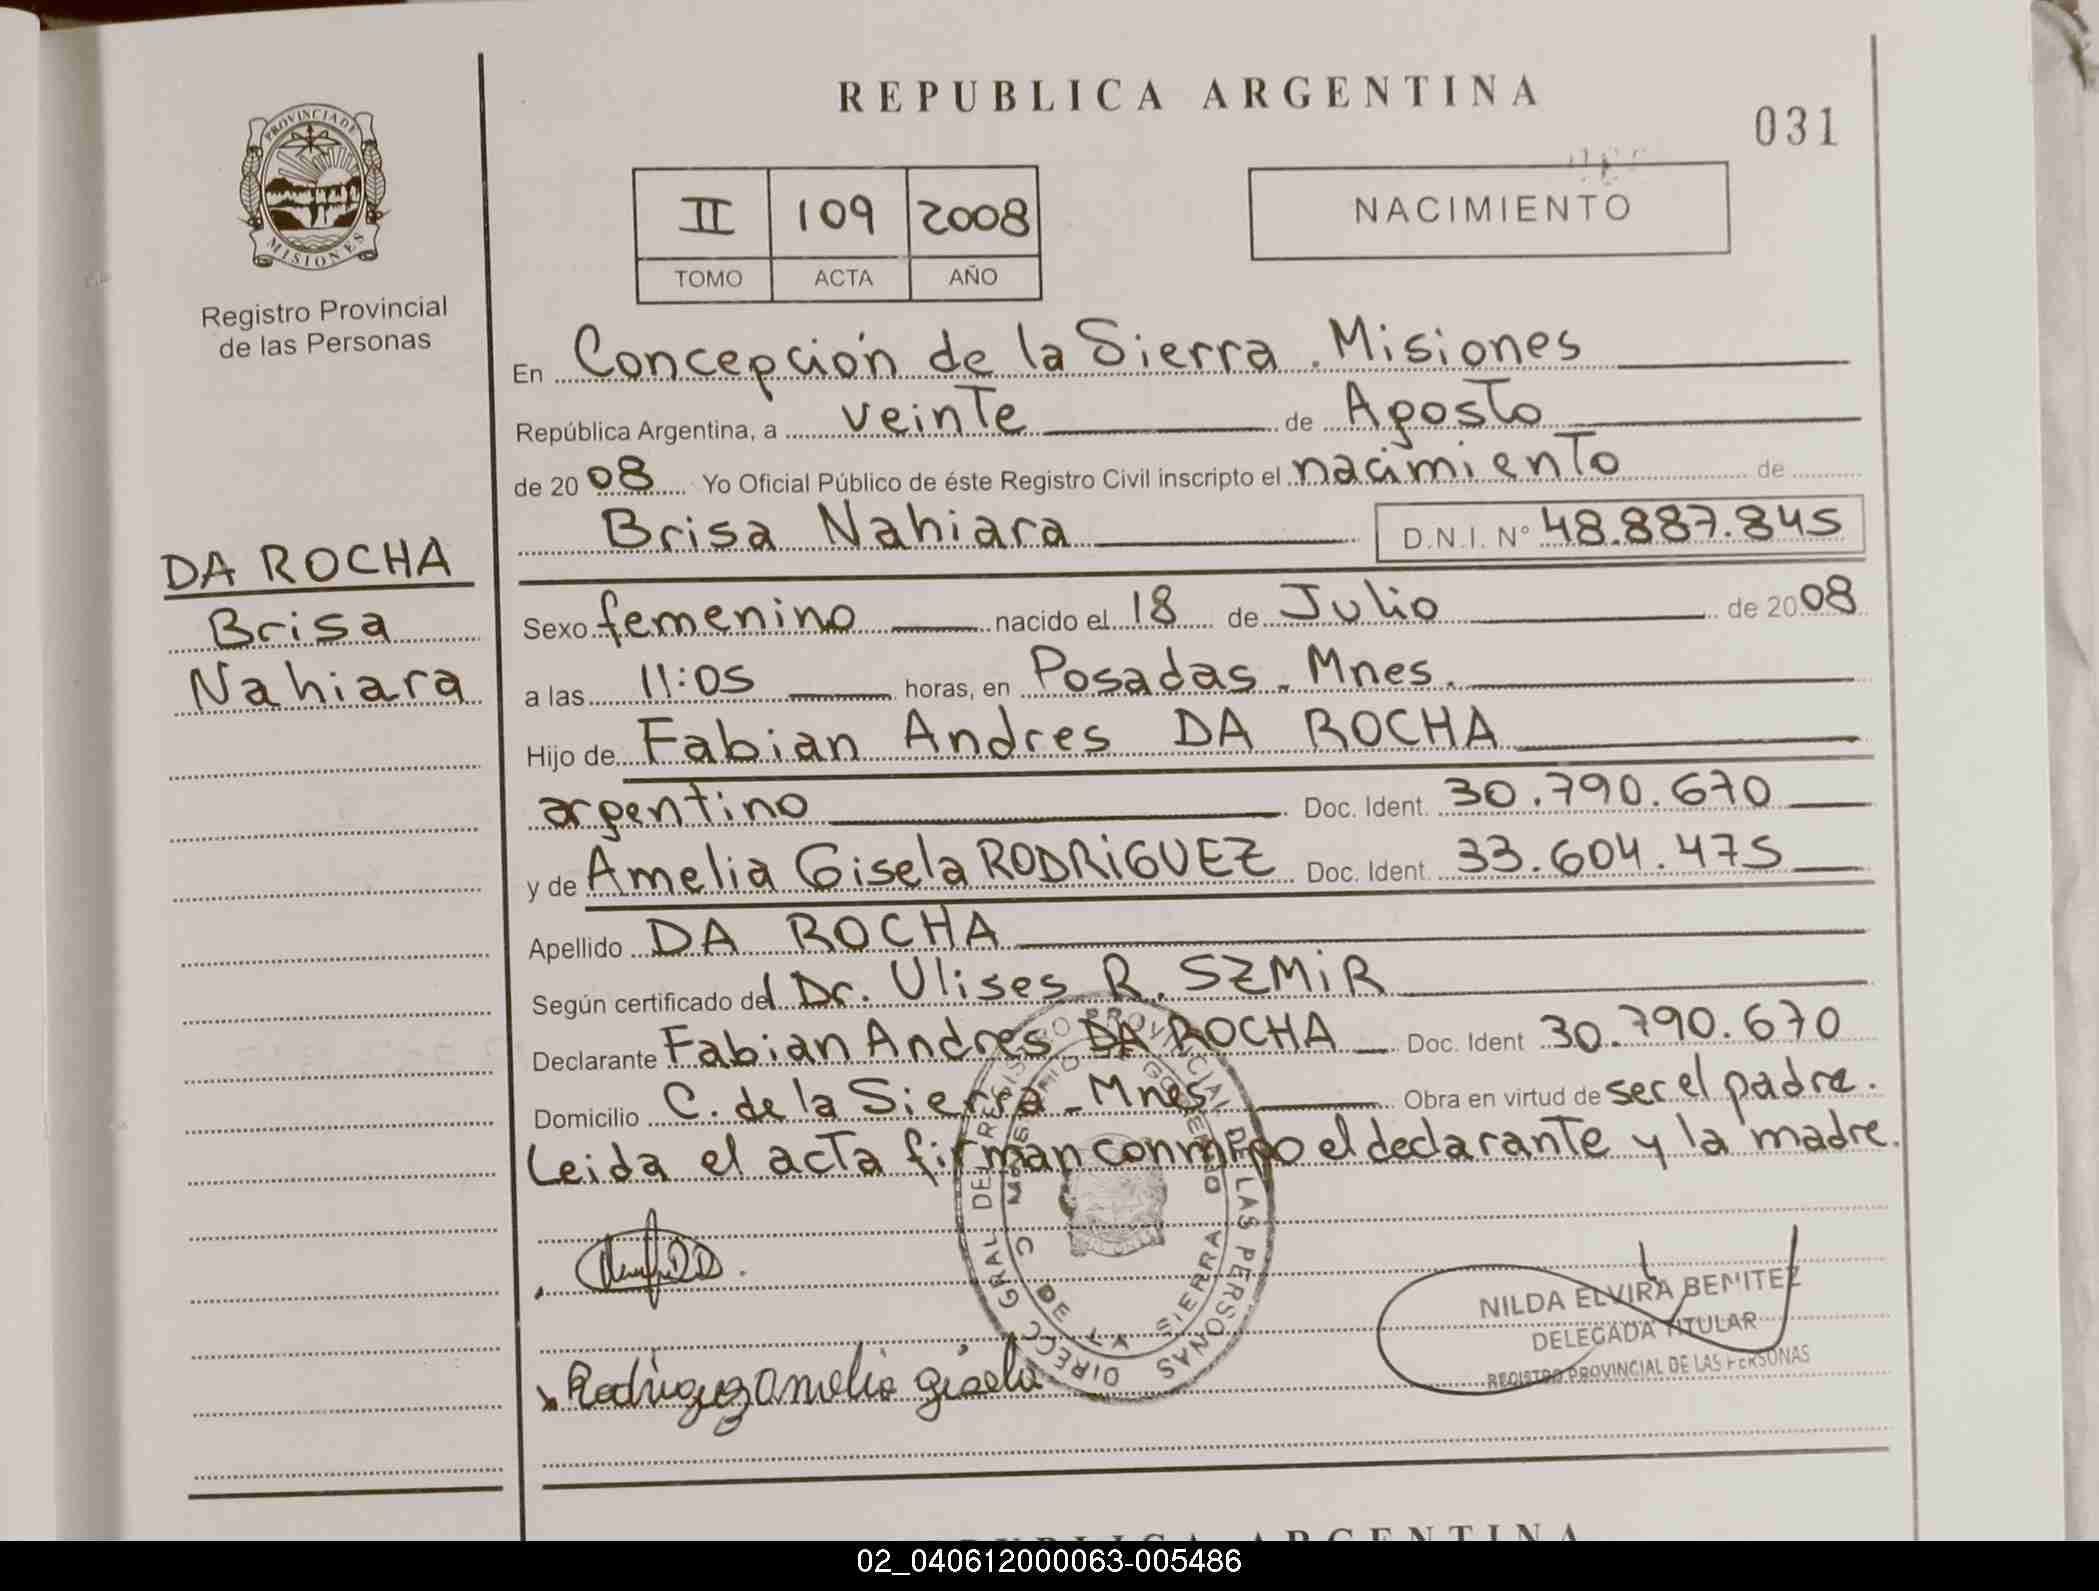 REPUBLICA ARGENTINA
031
PROVINCIA DE
MISIONES
Registro Provincial
de las Personas
II 109 2008
TOMO ACTA AÑO
NACIMIENTO
En Concepción de la Sierra. Misiones
República Argentina, a veinte de Agosto
de 2008 Yo Oficial Público de éste Registro Civil inscripto el nacimiento de
Brisa Nahiara D.N.I. N° 48.887.845
DA ROCHA
Brisa
Nahiara
Sexo femenino nacido el 18 de Julio de 2008
a las 11:05 horas, en Posadas. Mnes.
Hijo de Fabian Andres DA ROCHA
argentino Doc. Ident. 30.790.670
y de Amelia Gisela RODRIGUEZ Doc. Ident. 33.604.475
Apellido DA ROCHA
Según certificado del Dr. Ulises R. SZMIR
Declarante Fabian Andres DA ROCHA Doc. Ident 30.790.670
Domicilio C. de la Sierra - Mnes Obra en virtud de ser el padre.
Leida el acta firman conmigo el declarante y la madre.
DIRECC GRAL DEL REGISTRO PROVINCIAL DE LAS PERSONAS
C DE LA SIERRA
NILDA ELVIRA BENITEZ
DELEGADA TITULAR
REGISTRO PROVINCIAL DE LAS PERSONAS
Rodriguez Amelia Gisela
REPUBLICA ARGENTINA
02_040612000063-005486